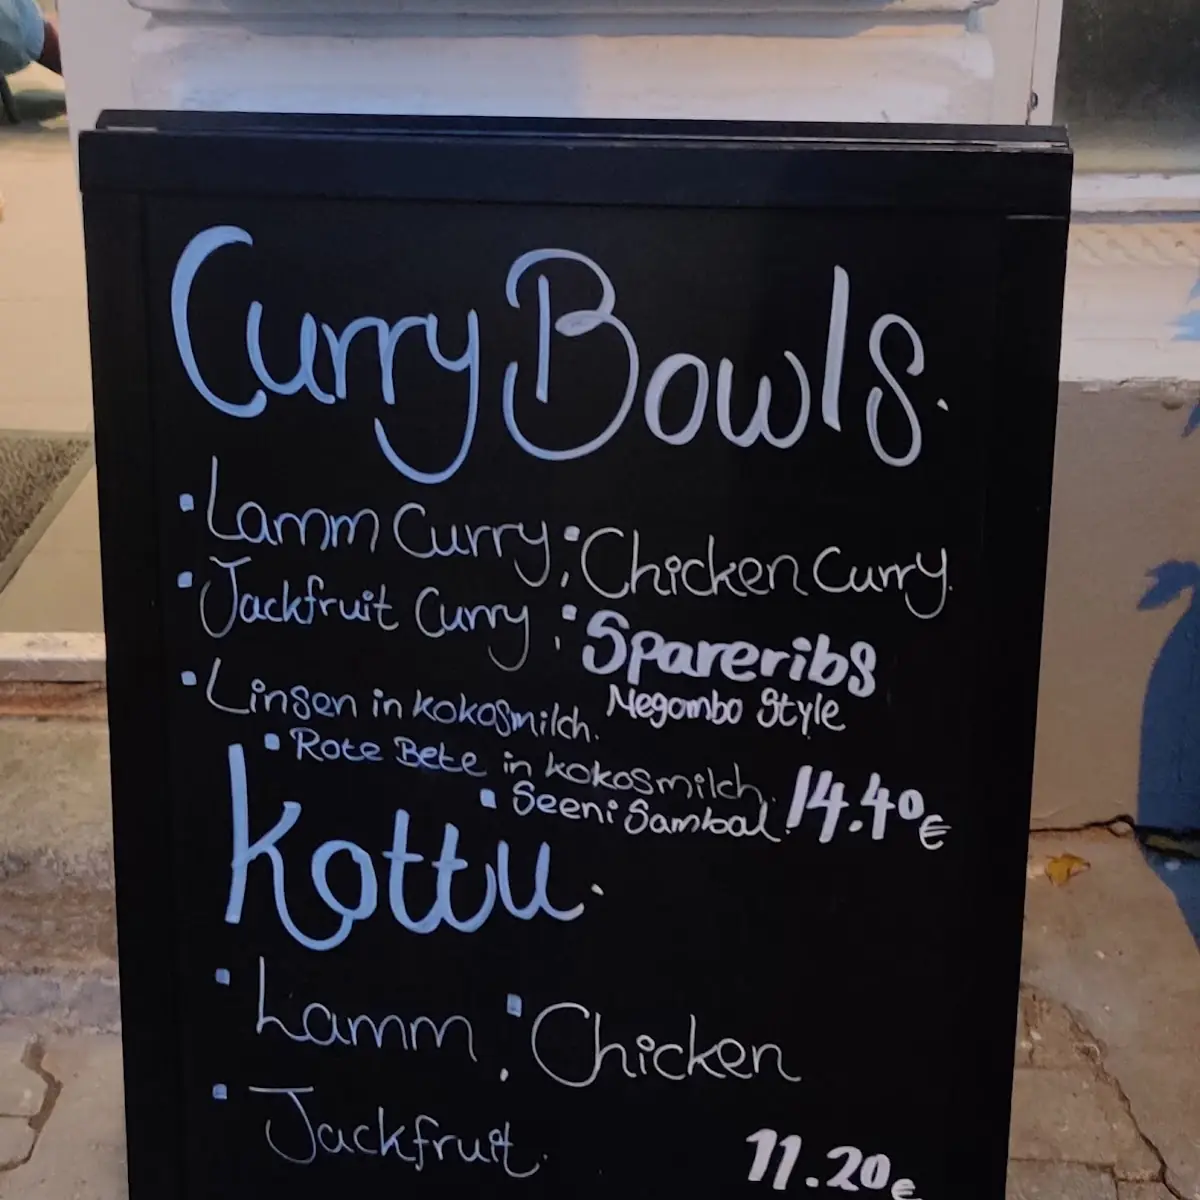 Curry Bowls.
• Lamm Curry, • Chicken Curry.
• Jackfruit Curry, • Spareribs
Negombo Style
• Linsen in Kokosmilch.
• Rote Bete in Kokosmilch.
• Seeni Sambal. 14.40€
Kottu.
• Lamm, • Chicken
• Jackfruit.
11.20€